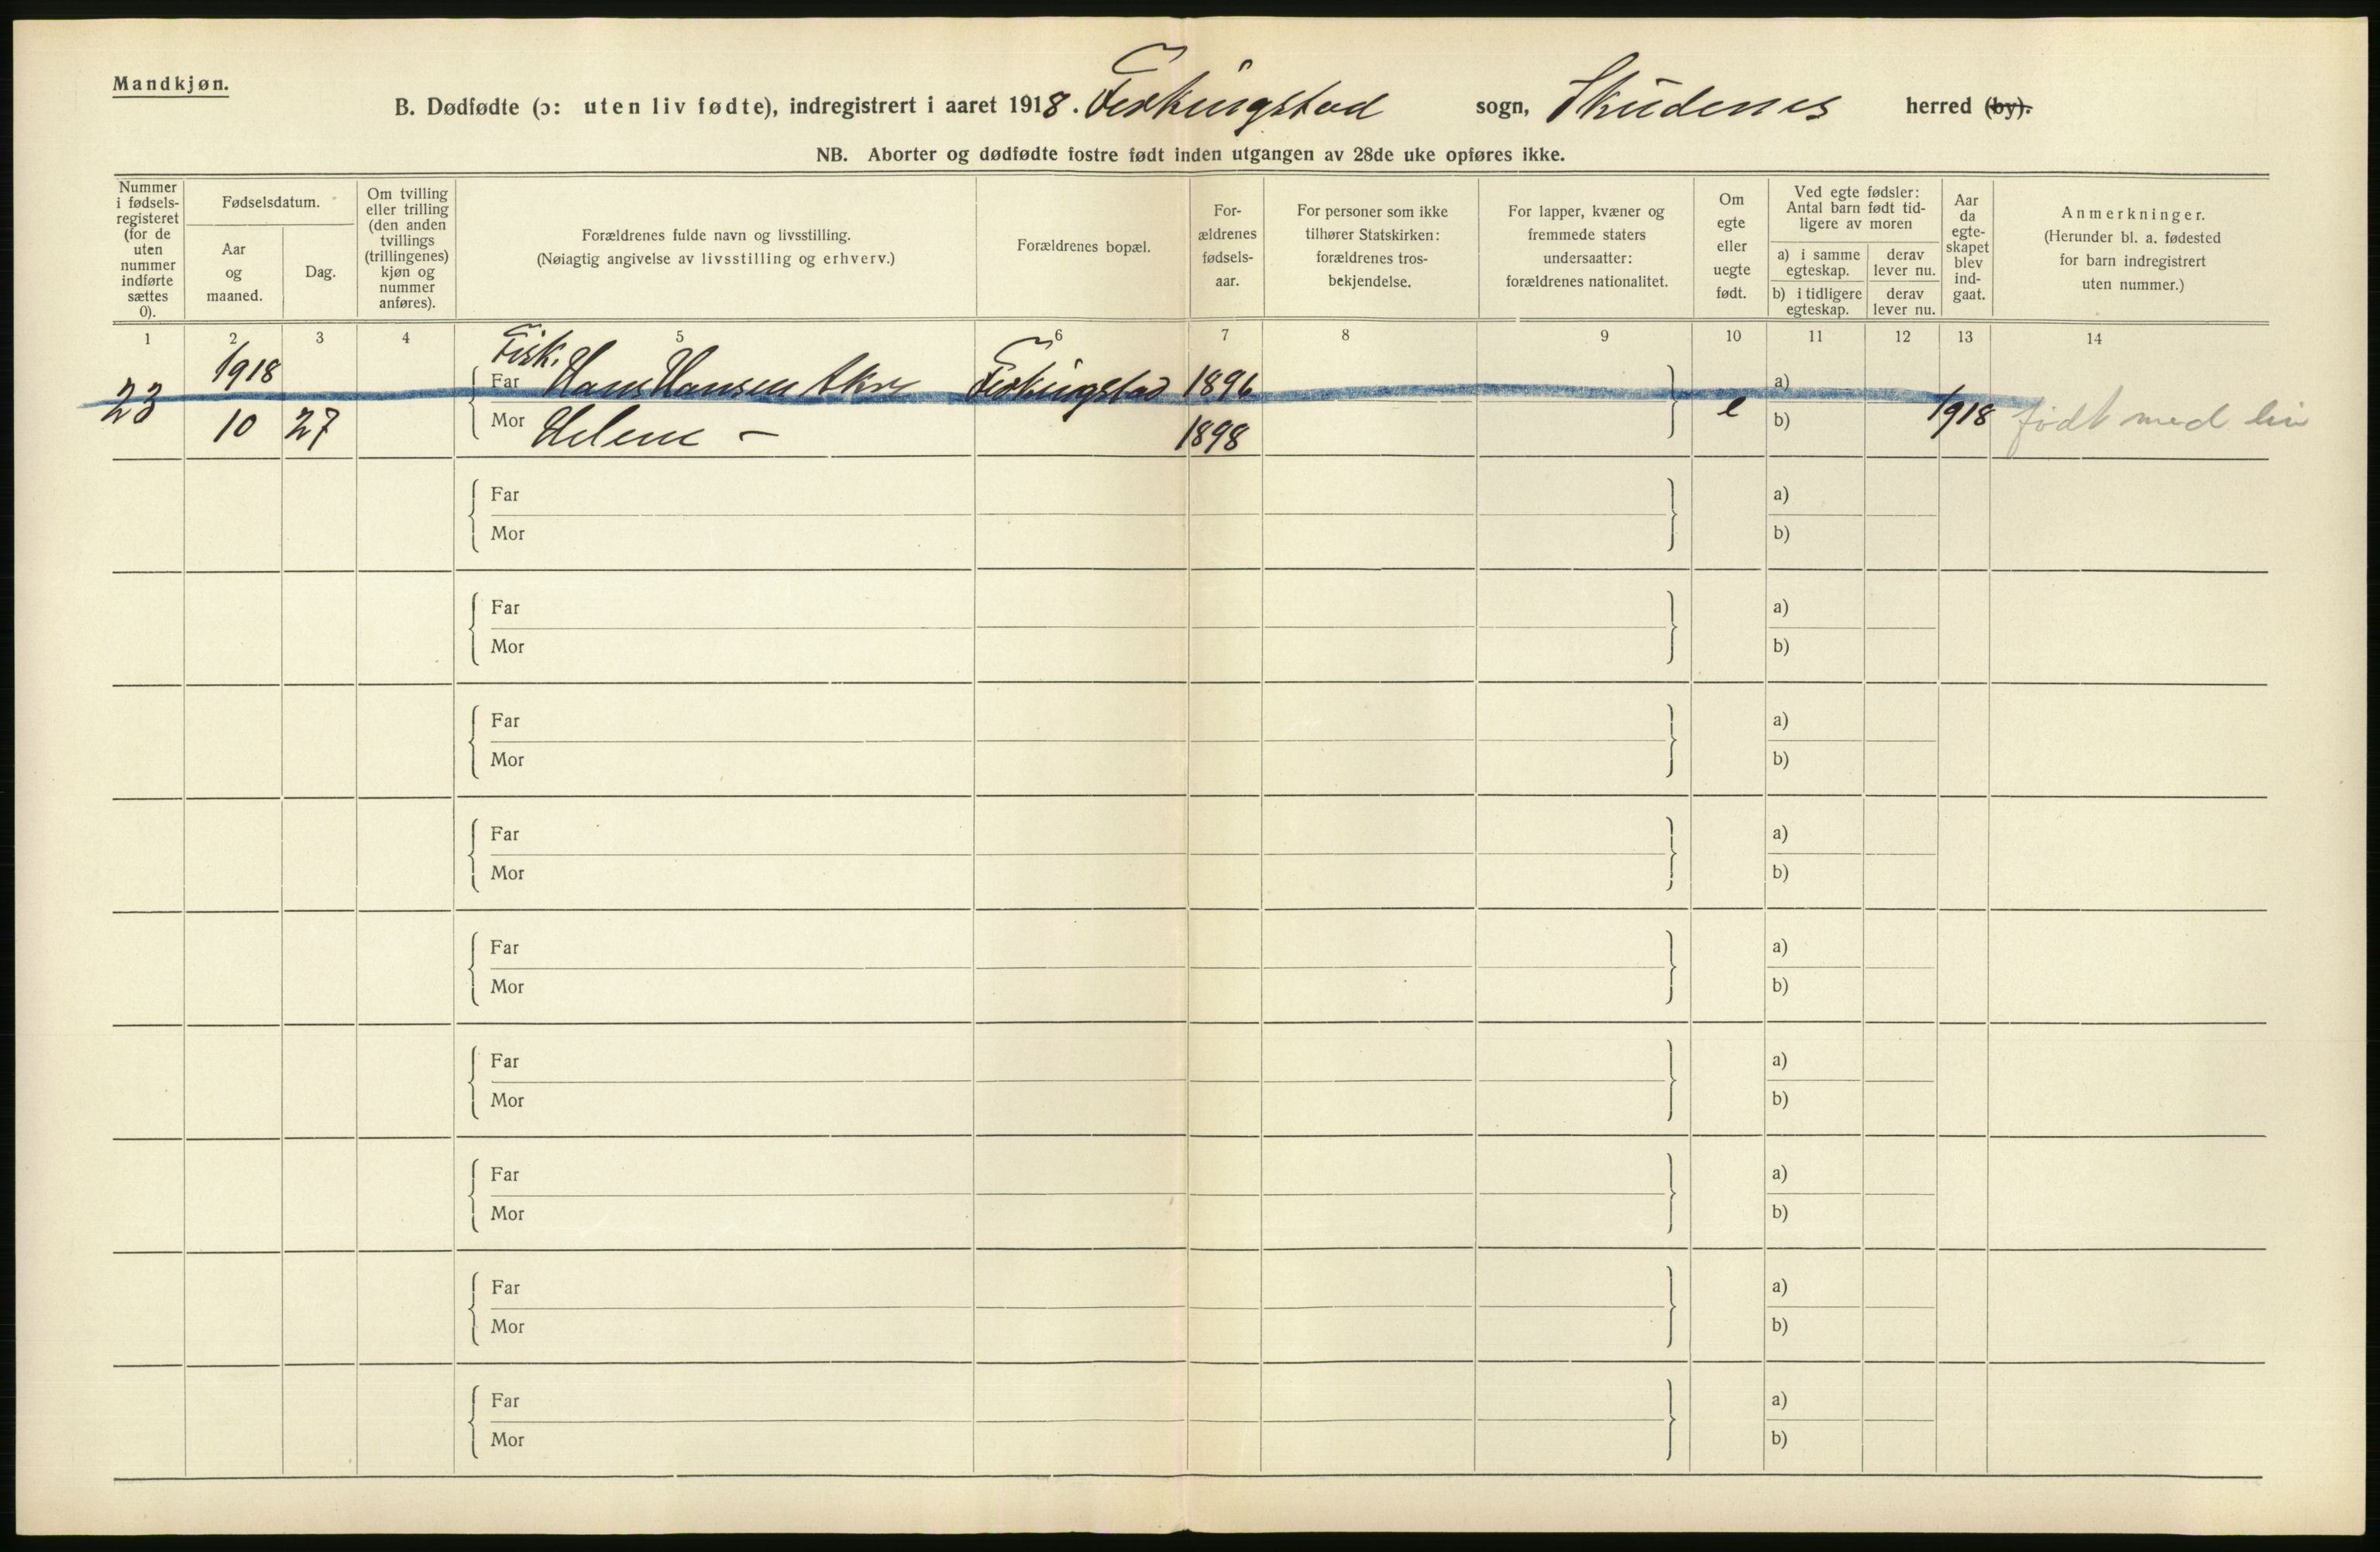 Mandkjøn.
B. Dødfødte (ɔ: uten liv fødte), indregistrert i aaret 1918. Ferkingstad sogn, Skudenes herred (by).
NB. Aborter og dødfødte fostre født inden utgangen av 28de uke opføres ikke.
Nummer i fødsels-registeret (for de uten nummer indførte sættes 0).
Fødselsdatum.
Aar og maaned.
Dag.
Om tvilling eller trilling (den anden tvillings (trillingenes) kjøn og nummer anføres).
Forældrenes fulde navn og livsstilling.
(Nøiagtig angivelse av livsstilling og erhverv.)
Forældrenes bopæl.
For-ældrenes fødsels-aar.
For personer som ikke tilhører Statskirken: forældrenes tros-bekjendelse.
For lapper, kvæner og fremmede staters undersaatter: forældrenes nationalitet.
Om egte eller uegte født.
Ved egte fødsler: Antal barn født tid-ligere av moren
a) i samme egteskap.
derav lever nu.
b) i tidligere egteskap.
derav lever nu.
Aar da egte-skapet blev ind-gaat.
Anmerkninger.
(Herunder bl. a. fødested for barn indregistrert uten nummer.)
1 2 3 4 5 6 7 8 9 10 11 12 13 14
1918 Fisk.
23 Far Hans Hansen Akre Ferkingstad 1896 a)
10 27 Mor Helene - 1898 e b) 1918 født med liv
Far a)
Mor b)
Far a)
Mor b)
Far a)
Mor b)
Far a)
Mor b)
Far a)
Mor b)
Far a)
Mor b)
Far a)
Mor b)
Far a)
Mor b)
Far a)
Mor b)